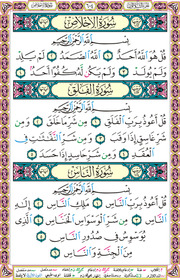 سُورَةُ الإِخْلَاصِ
بِسْمِ اللَّهِ الرَّحْمَٰنِ الرَّحِيمِ
قُلْ هُوَ اللَّهُ أَحَدٌ ١ اللَّهُ الصَّمَدُ ٢ لَمْ يَلِدْ
وَلَمْ يُولَدْ ٣ وَلَمْ يَكُن لَّهُ كُفُوًا أَحَدٌ ٤
سُورَةُ الفَلَقِ
بِسْمِ اللَّهِ الرَّحْمَٰنِ الرَّحِيمِ
قُلْ أَعُوذُ بِرَبِّ الْفَلَقِ ١ مِن شَرِّ مَا خَلَقَ ٢ وَمِن
شَرِّ غَاسِقٍ إِذَا وَقَبَ ٣ وَمِن شَرِّ النَّفَّاثَاتِ فِي
الْعُقَدِ ٤ وَمِن شَرِّ حَاسِدٍ إِذَا حَسَدَ ٥
سُورَةُ النَّاسِ
بِسْمِ اللَّهِ الرَّحْمَٰنِ الرَّحِيمِ
قُلْ أَعُوذُ بِرَبِّ النَّاسِ ١ مَلِكِ النَّاسِ ٢ إِلَٰهِ
النَّاسِ ٣ مِن شَرِّ الْوَسْوَاسِ الْخَنَّاسِ ٤ الَّذِي
يُوَسْوِسُ فِي صُدُورِ النَّاسِ ٥
مِنَ الْجِنَّةِ وَالنَّاسِ ٦